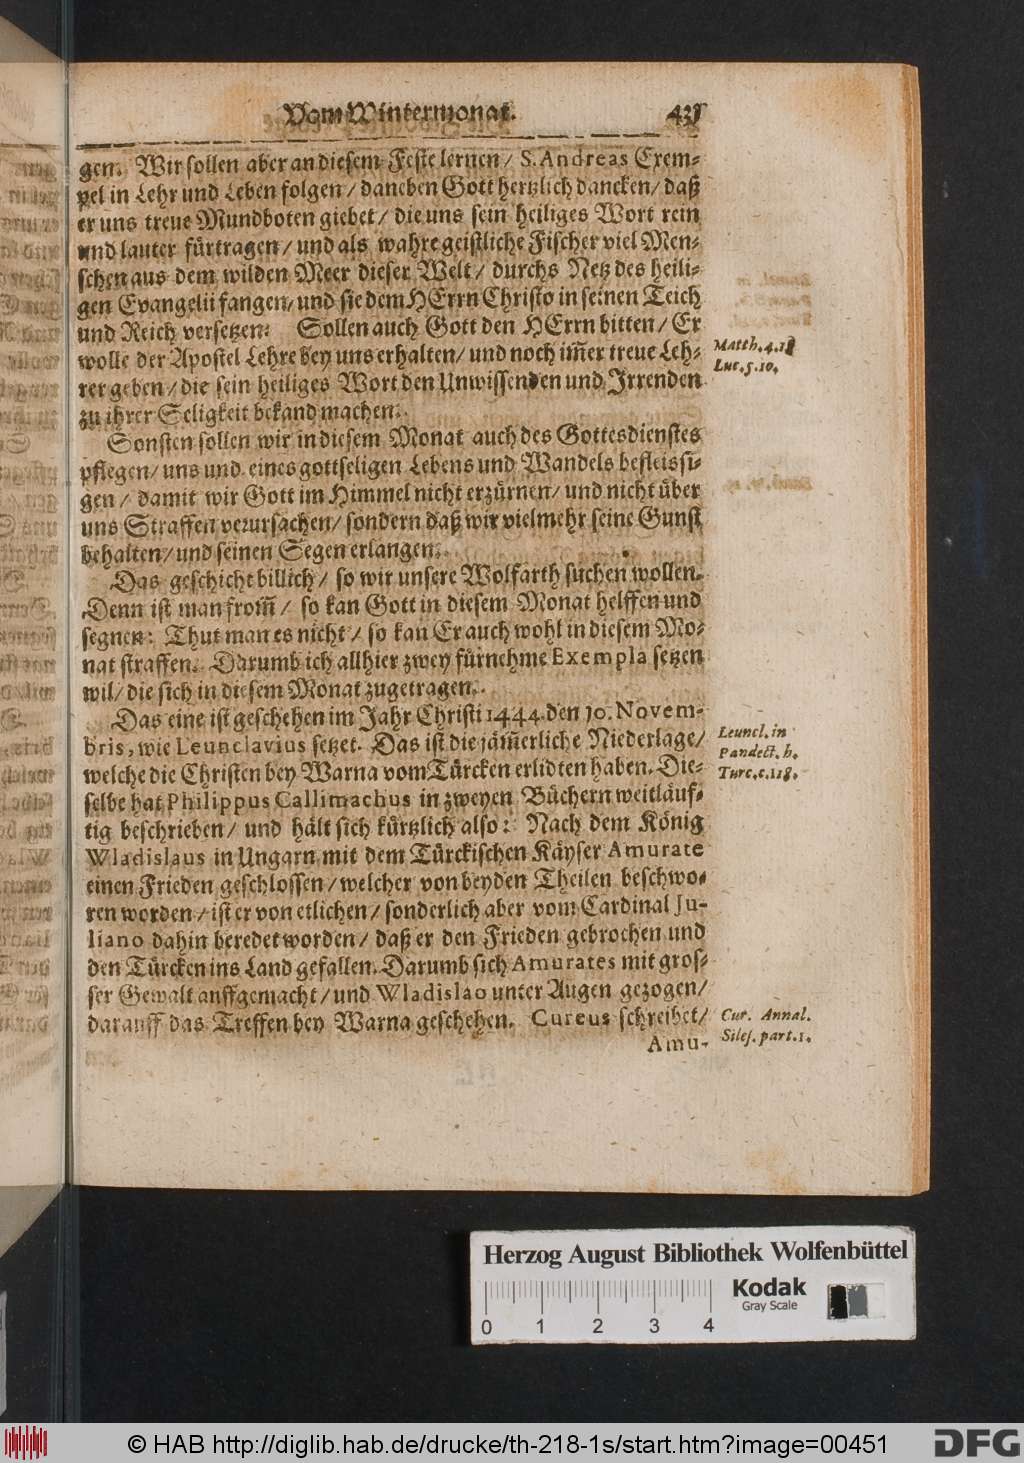 Vom Wintermonat. 431
gen. Wir sollen aber an diesem Feste lernen / S. Andreas Exem-
pel in Lehr und Leben folgen / daneben Gott hertzlich dancken / daß
er uns treue Mundboten giebet / die uns sein heiliges Wort rein
und lauter fürtragen / und als wahre geistliche Fischer viel Men-
schen aus dem wilden Meer dieser Welt / durchs Netz des heili-
gen Evangelii fangen / und sie dem HErrn Christo in seinen Teich
und Reich versetzen. Sollen auch Gott den HErrn bitten / Er
wolle der Apostel Lehre bey uns erhalten / und noch im̃er treue Leh-
rer geben / die sein heiliges Wort den Unwissenden und Irrenden
zu ihrer Seligkeit bekand machen.
Matth. 4. 18
Luc. 5. 10.
Sonsten sollen wir in diesem Monat auch des Gottesdienstes
pflegen / uns und eines gottseligen Lebens und Wandels befleissi-
gen / damit wir Gott im Himmel nicht erzürnen / und nicht über
uns Straffen verursachen / sondern daß wir vielmehr seine Gunst
behalten / und seinen Segen erlangen.
Das geschicht billich / so wir unsere Wolfarth suchen wollen.
Denn ist man from̃ / so kan Gott in diesem Monat helffen und
segnen: Thut man es nicht / so kan Er auch wohl in diesem Mo-
nat straffen. Darumb ich allhier zwey fürnehme Exempla setzen
wil / die sich in diesem Monat zugetragen.
Das eine ist geschehen im Jahr Christi 1444. den 10. Novem-
bris, wie Leunclavius setzet. Das ist die jäm̃erliche Niederlage /
welche die Christen bey Warna vom Türcken erlidten haben. Die-
selbe hat Philippus Callimachus in zweyen Büchern weitläuf-
tig beschrieben / und hält sich kürtzlich also: Nach dem König
Wladislaus in Ungarn mit dem Türckischen Käyser Amurate
einen Frieden geschlossen / welcher von beyden Theilen beschwo-
ren worden / ist er von etlichen / sonderlich aber vom Cardinal Ju-
liano dahin beredet worden / daß er den Frieden gebrochen und
den Türcken ins Land gefallen. Darumb sich Amurates mit gros-
ser Gewalt auffgemacht / und Wladislao unter Augen gezogen /
darauff das Treffen bey Warna geschehen. Cureus schreibet /
Amu-
Leuncl. in
Pandect. h.
Turc. c. 118.
Cur. Annal.
Siles. part. 1.
Herzog August Bibliothek Wolfenbüttel
Kodak
Gray Scale
0 1 2 3 4
© HAB http://diglib.hab.de/drucke/th-218-1s/start.htm?image=00451
DFG